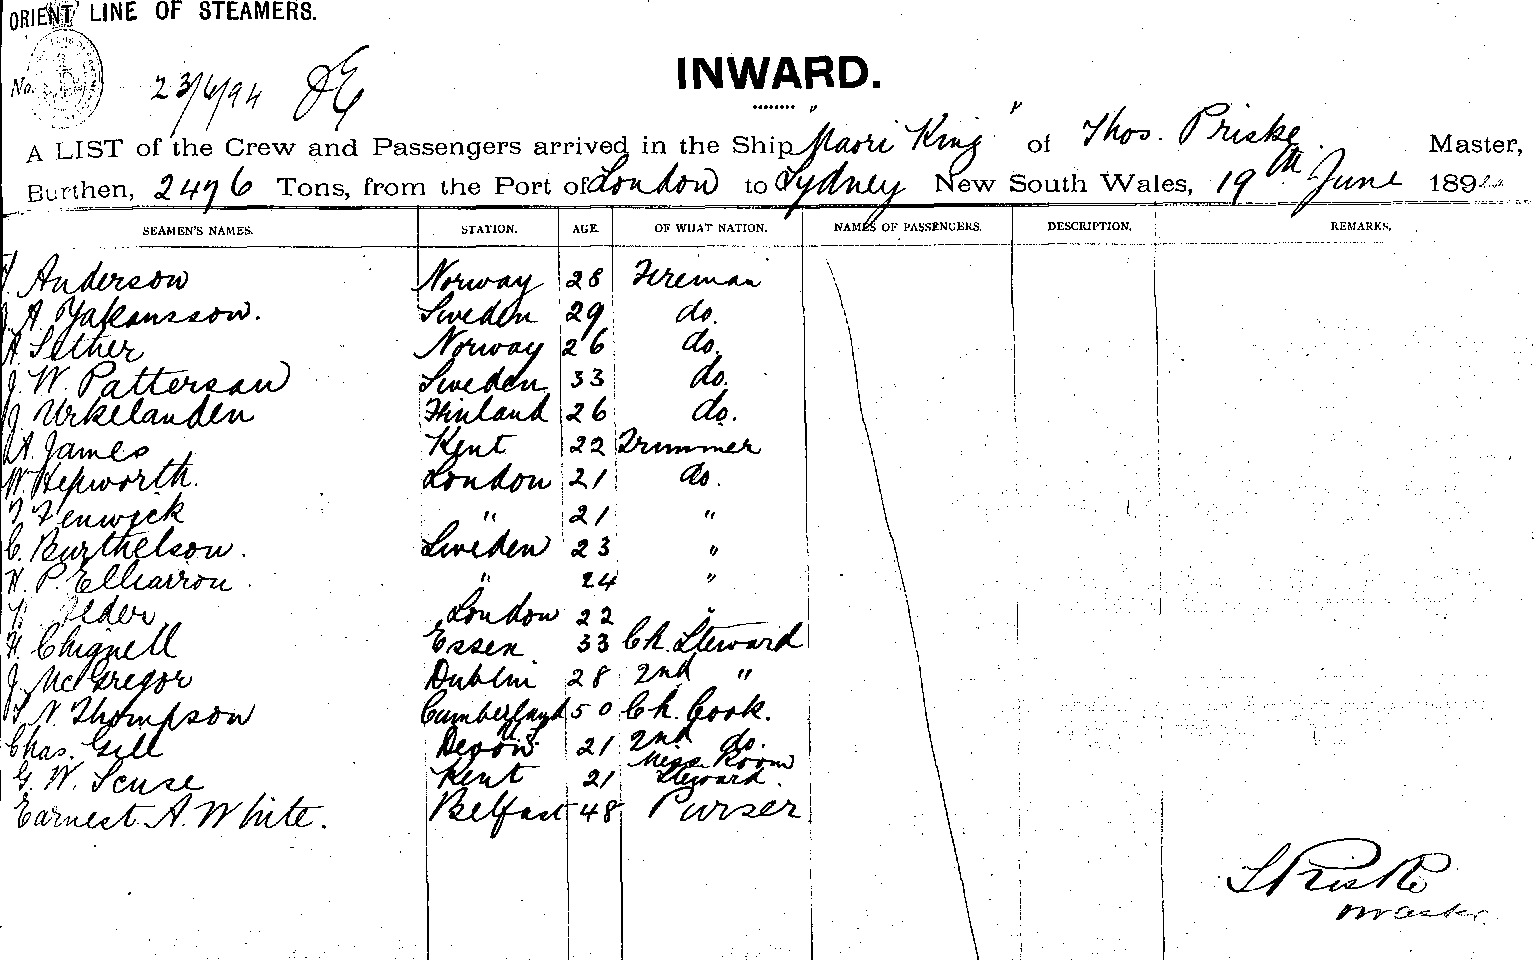 ORIENT LINE OF STEAMERS.
No. 23/6/94
INWARD.
A LIST of the Crew and Passengers arrived in the Ship "Maori King" of Thos. Priske Master,
Burthen, 2476 Tons, from the Port of London to Sydney New South Wales, 19th June 189
SEAMEN'S NAMES. STATION. AGE. OF WHAT NATION. NAMES OF PASSENGERS. DESCRIPTION. REMARKS.
Anderson Norway 28 Fireman
A. Yakansson. Sweden 29 do.
A. Sether Norway 26 do.
J. W. Patterson Sweden 33 do.
J. Urkelanden Finland 26 do.
A. James Kent 22 Trimmer
W. Hepworth. London 21 do.
Fenwick " 21 "
C. Burthelson. Sweden 23 "
H. P. Elliarron. " 24 "
London 22 "
H. Chignell Essex 33 Ch. Steward
J. McGregor Dublin 28 2nd "
N. Thompson Cumberland 50 Ch. Cook.
Chas. Gill Devon 21 2nd do.
G. W. Scuse Kent 21 Mess Room Steward.
Earnest A. White. Belfast 48 Purser
T Priske
Master